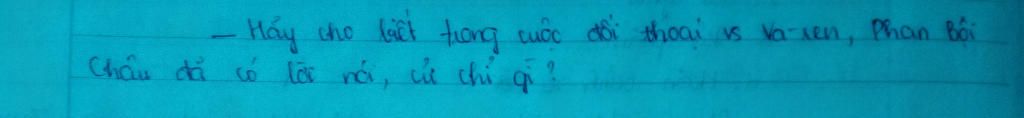 - Hãy cho biết trong cuộc đối thoại vs Va-ren, Phan Bội
Châu đã có lời nói, cử chỉ gì?